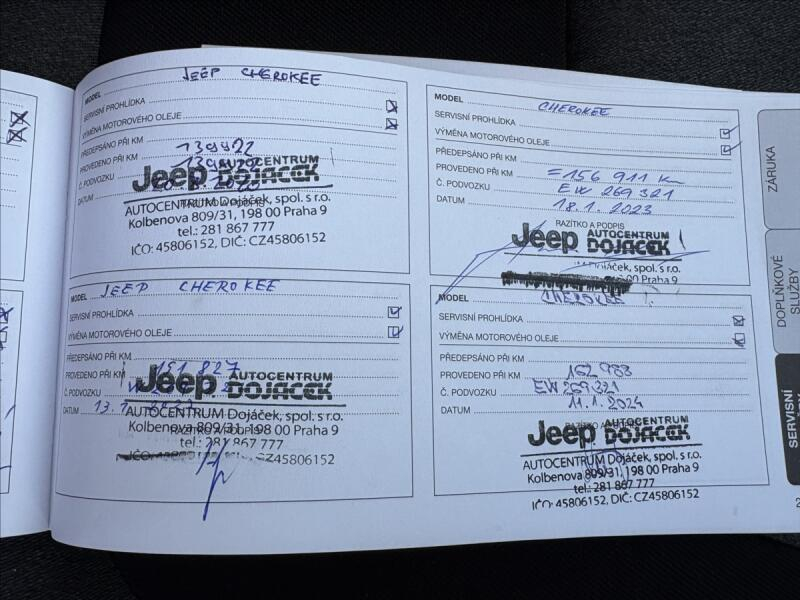 JEEP CHEROKEE
MODEL
SERVISNÍ PROHLÍDKA
VÝMĚNA MOTOROVÉHO OLEJE
PŘEDEPSÁNO PŘI KM
139922
PROVEDENO PŘI KM
Č. PODVOZKU
DATUM
Jeep AUTOCENTRUM
DOJÁČEK
AUTOCENTRUM Dojáček, spol. s r.o.
Kolbenova 809/31, 198 00 Praha 9
tel.: 281 867 777
IČO: 45806152, DIČ: CZ45806152
MODEL JEEP CHEROKEE
SERVISNÍ PROHLÍDKA
VÝMĚNA MOTOROVÉHO OLEJE
PŘEDEPSÁNO PŘI KM
PROVEDENO PŘI KM 151 827
Č. PODVOZKU
DATUM 13.
Jeep AUTOCENTRUM
DOJÁČEK
AUTOCENTRUM Dojáček, spol. s r.o.
Kolbenova 809/31, 198 00 Praha 9
RAZÍTKO A PODPIS
tel.: 281 867 777
CZ45806152
MODEL CHEROKEE
SERVISNÍ PROHLÍDKA
VÝMĚNA MOTOROVÉHO OLEJE
PŘEDEPSÁNO PŘI KM
PROVEDENO PŘI KM =156 911 km
Č. PODVOZKU EW 269321
DATUM 18.1.2023
RAZÍTKO A PODPIS
Jeep AUTOCENTRUM
DOJÁČEK
Dojáček, spol. s r.o.
00 Praha 9
MODEL CHEROKEE
SERVISNÍ PROHLÍDKA
VÝMĚNA MOTOROVÉHO OLEJE
PŘEDEPSÁNO PŘI KM
PROVEDENO PŘI KM 162 983
Č. PODVOZKU EW269321
DATUM 11.1.2024
Jeep AUTOCENTRUM
DOJÁČEK
AUTOCENTRUM Dojáček, spol. s r.o.
Kolbenova 809/31, 198 00 Praha 9
tel.: 281 867 777
IČO: 45806152, DIČ: CZ45806152
ZÁRUKA
DOPLŇKOVÉ
SLUŽBY
SERVISNÍ